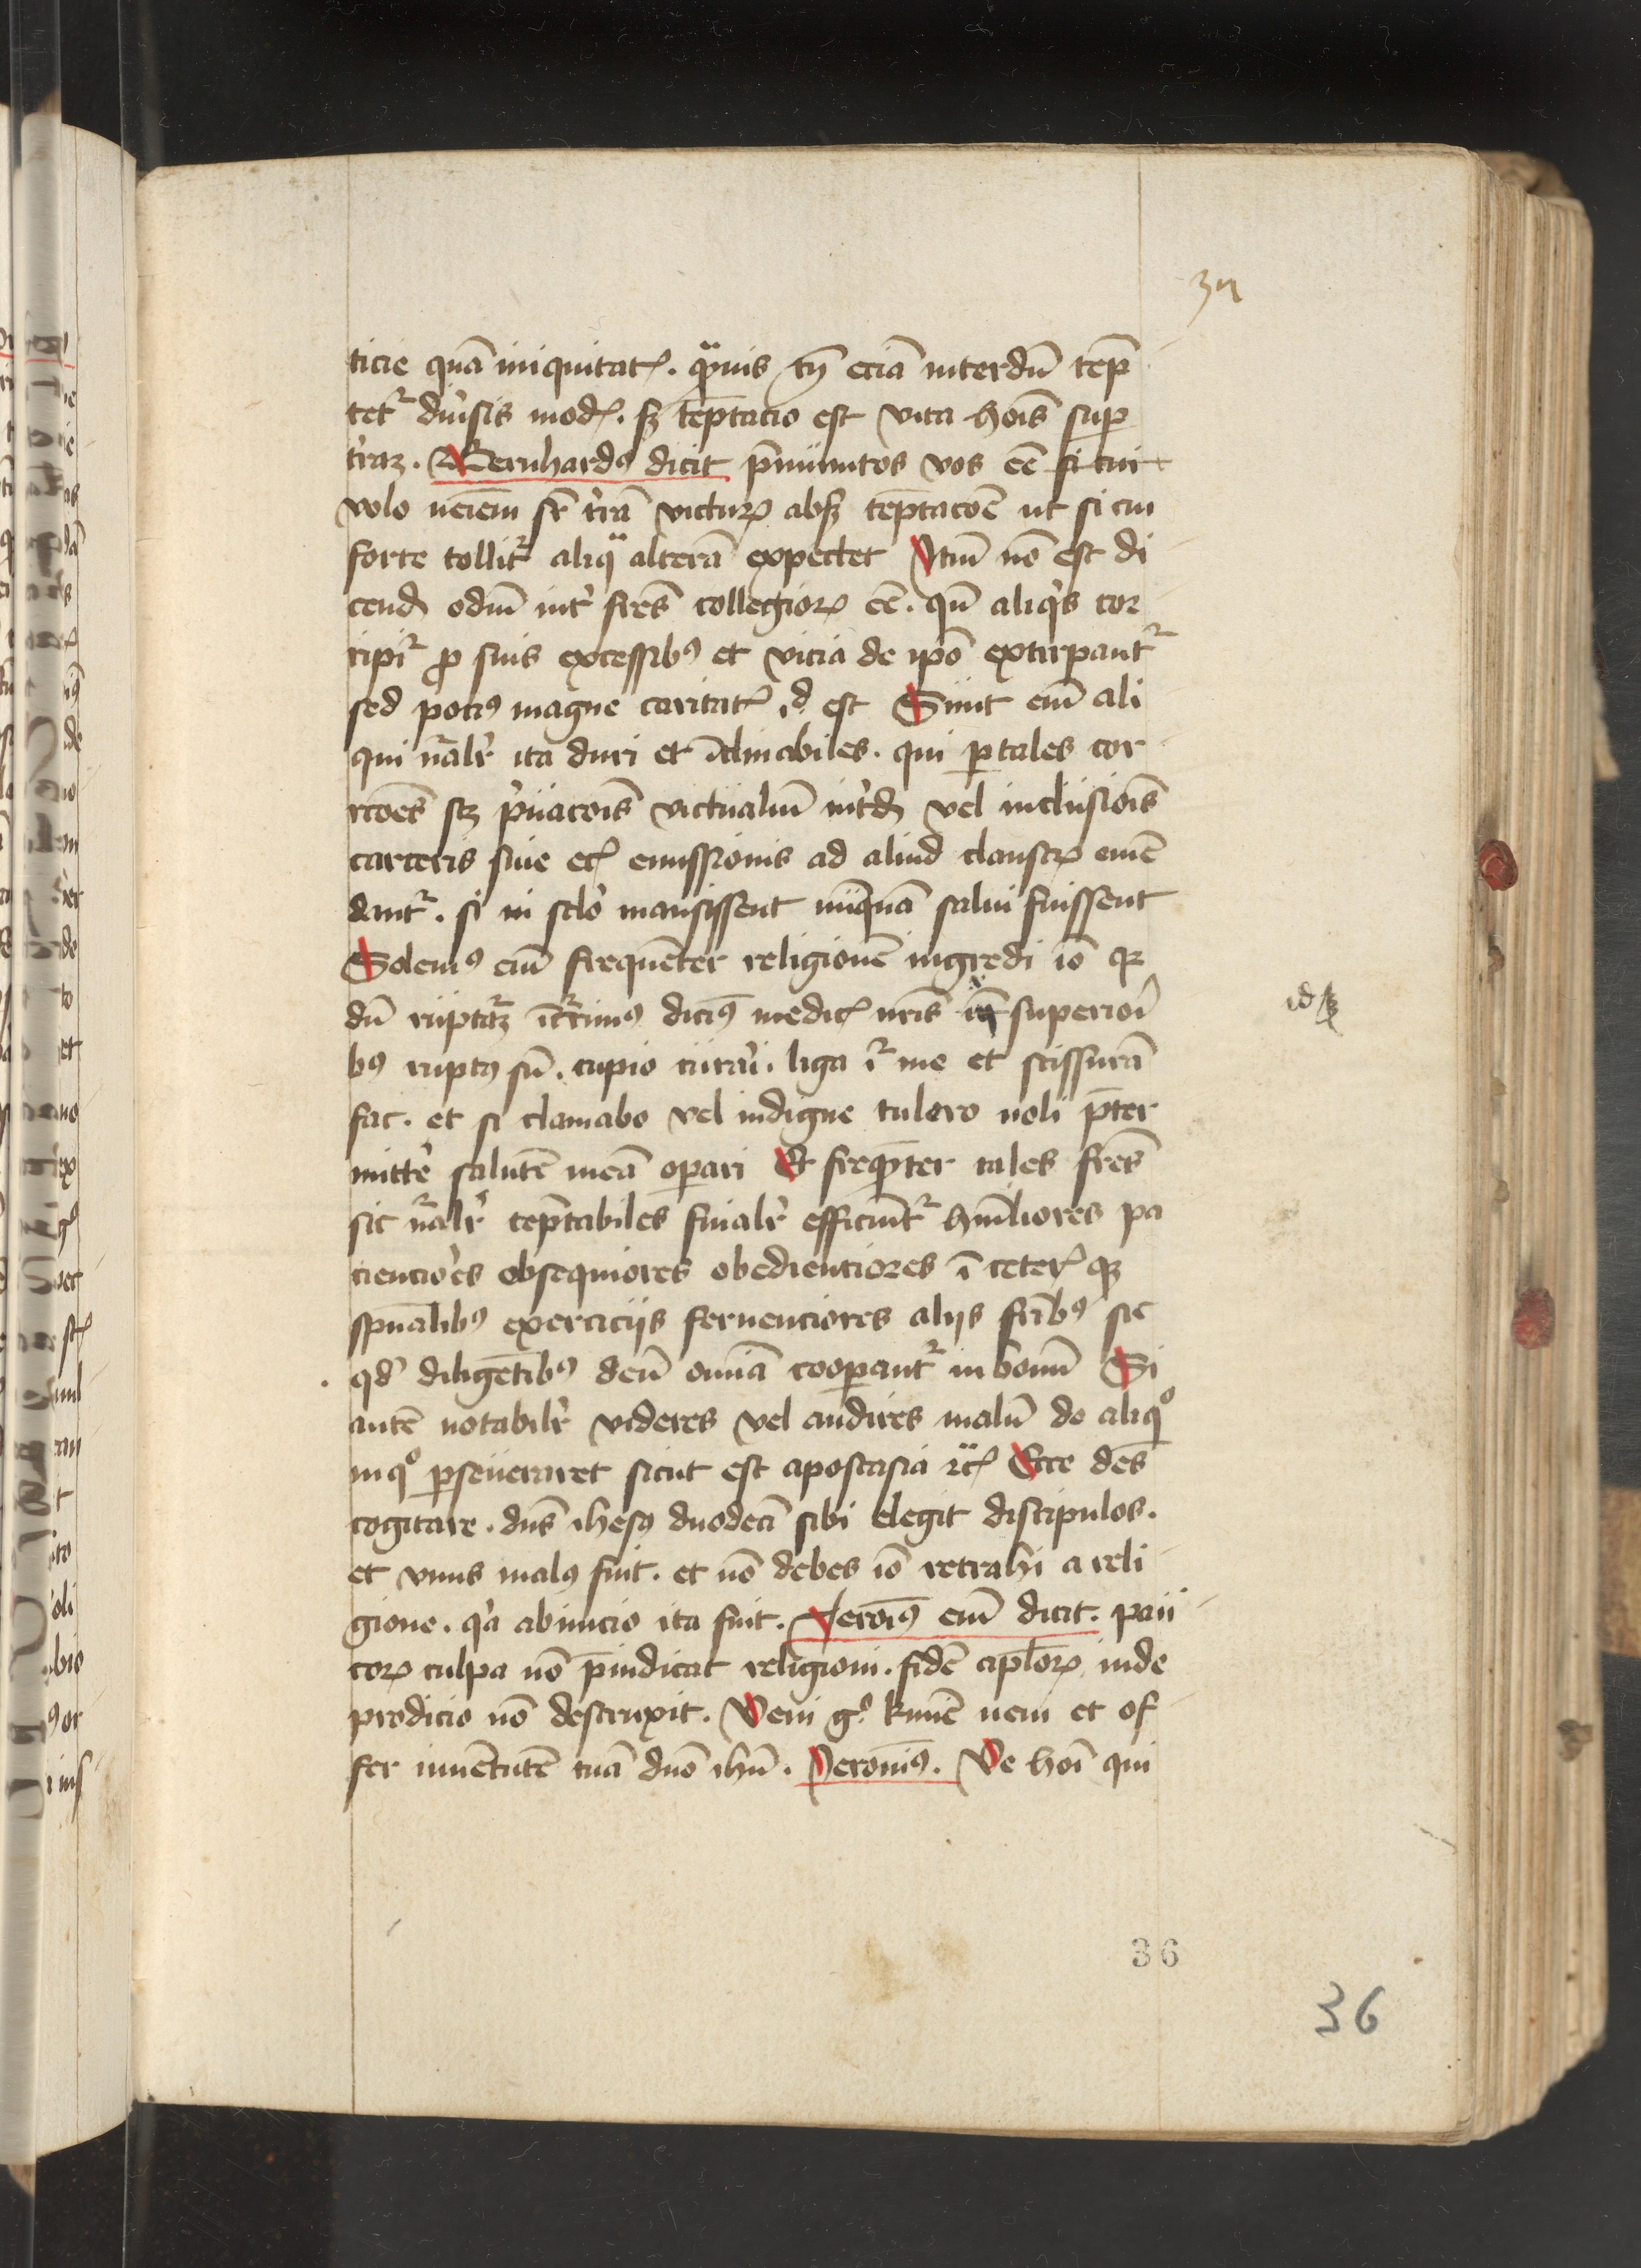 37
ticie quā iniquitatꝭ. qͣuis tn̄ eciā interdū tēp
tetᷣ diu͛sis modꝭ. sꝫ tēptacio est vita hoīs suꝑ
t͛raꝫ. Bernhardꝰ dicit p̄mūnitos vos eē si cui
volo neīem sr̄ t͛rā victurꝝ absqꝫ tēptacōe ut si cui
forte tollitᷣ aliqͣ alterā expectet Itm̄ nō est di
cend odiū int͛ fr̄es collegioꝝ eē. qn̄ aliqͥs cor
ripiᷣ ꝓ suis excessibꝰ et vicia de ip̄o extirpantᷣ
sed pociꝰ magne caritatꝭ id est Sunt eīm ali
qui nᷣalr̄ ita duri et ī́clinabiles. qui ꝑ tales cor
rcōes scꝫ p͛uacōis victualiū int͛d vel inclusiōis
carceris siue ecꝭ emissionis ad aliud claustꝝ emē
dantᷣ. si in sclo͛ mansissent nūquā salui fuissent
Solemꝰ eīm frequēter religionē ingredi iō qꝛ
dū ruptᷣaꝫ īcᷣrimꝰ dicīꝰ medicꝭ nr̄is superio͛i
idꝫ
bꝰ ruptꝰ sū. cupio curaͥi. liga iᷣ me et scissurā
fac. et si clamabo vel indigne tulero noli p̄ter
mitte͛ salutē meā oꝑari Et freqn̄ter tales fr̄es
sic nᷣalr̄ tēptabiles finalr̄ efficiūtᷣ hūiliores pa
ciencio͛es obsequiores obedienciores ī ceterꝭ qꝫ
spūalibꝰ exerciciis feruenciores aliis fr̄ibꝰ sic
qd͛ diligētibꝰ deū om̄ia cooꝑantᷣ in bonū Si
autē notabilr̄ videres vel audires malū de aliqͦ
in qͦ ꝑseueraret sicut est apostasia ⁊cꝭ Ecce des̄
cogitare. dn̄s ihesꝰ duodecī sibi elegit discipulos.
et vnus malꝰ fuit. et nō debes iō retrahi a reli
gione. qͥa ab inicio ita fuit. Ieroīꝰ eīm dicit. pau
coꝝ culpa nō p̄iudicat religioni. fidē apl̄oꝝ iude
prodicio nō destruxit. Veni gͦ kīmē ueni et of
fer iuuētutē tuā dn̄o ihū. Ieronīꝰ. Ve hoī qui
36
36